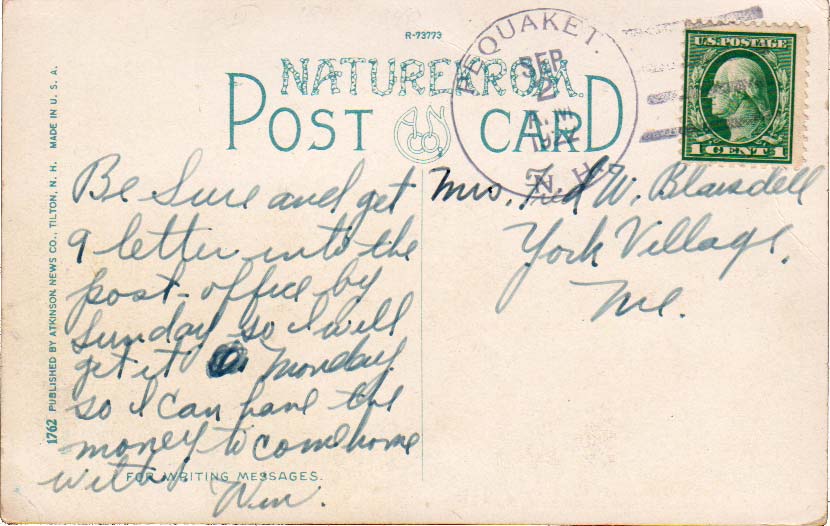 R-73773
NATURE FROM
POST CARD
ANCO
PEQUAKET.
SEP
2
A.M.
192
N.H.
U.S. POSTAGE
1 CENT 1
1762 PUBLISHED BY ATKINSON NEWS CO., TILTON, N. H. MADE IN U. S. A.
Be Sure and get
a letter into the
post-office by
Sunday so I will
get it Monday
so I can have the
money to come home
with.
Win.
FOR WRITING MESSAGES.
Mrs. Fred W. Blaisdell
York Village,
Me.